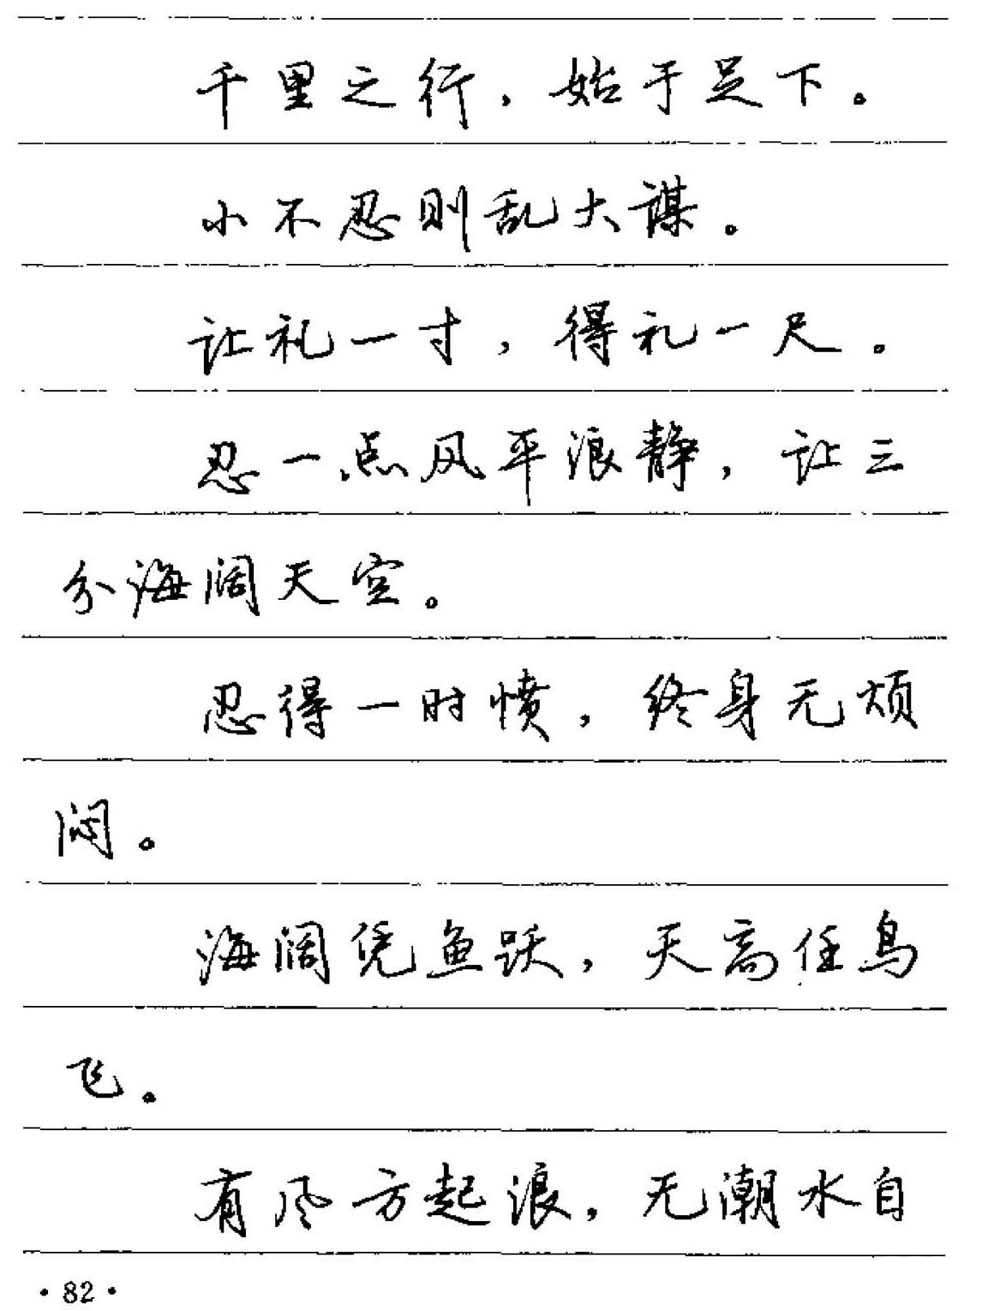 千里之行，始于足下。
小不忍则乱大谋。
让礼一寸，得礼一尺。
忍一点风平浪静，让三
分海阔天空。
忍得一时愤，终身无烦
闷。
海阔凭鱼跃，天高任鸟
飞。
有风方起浪，无潮水自
·82·